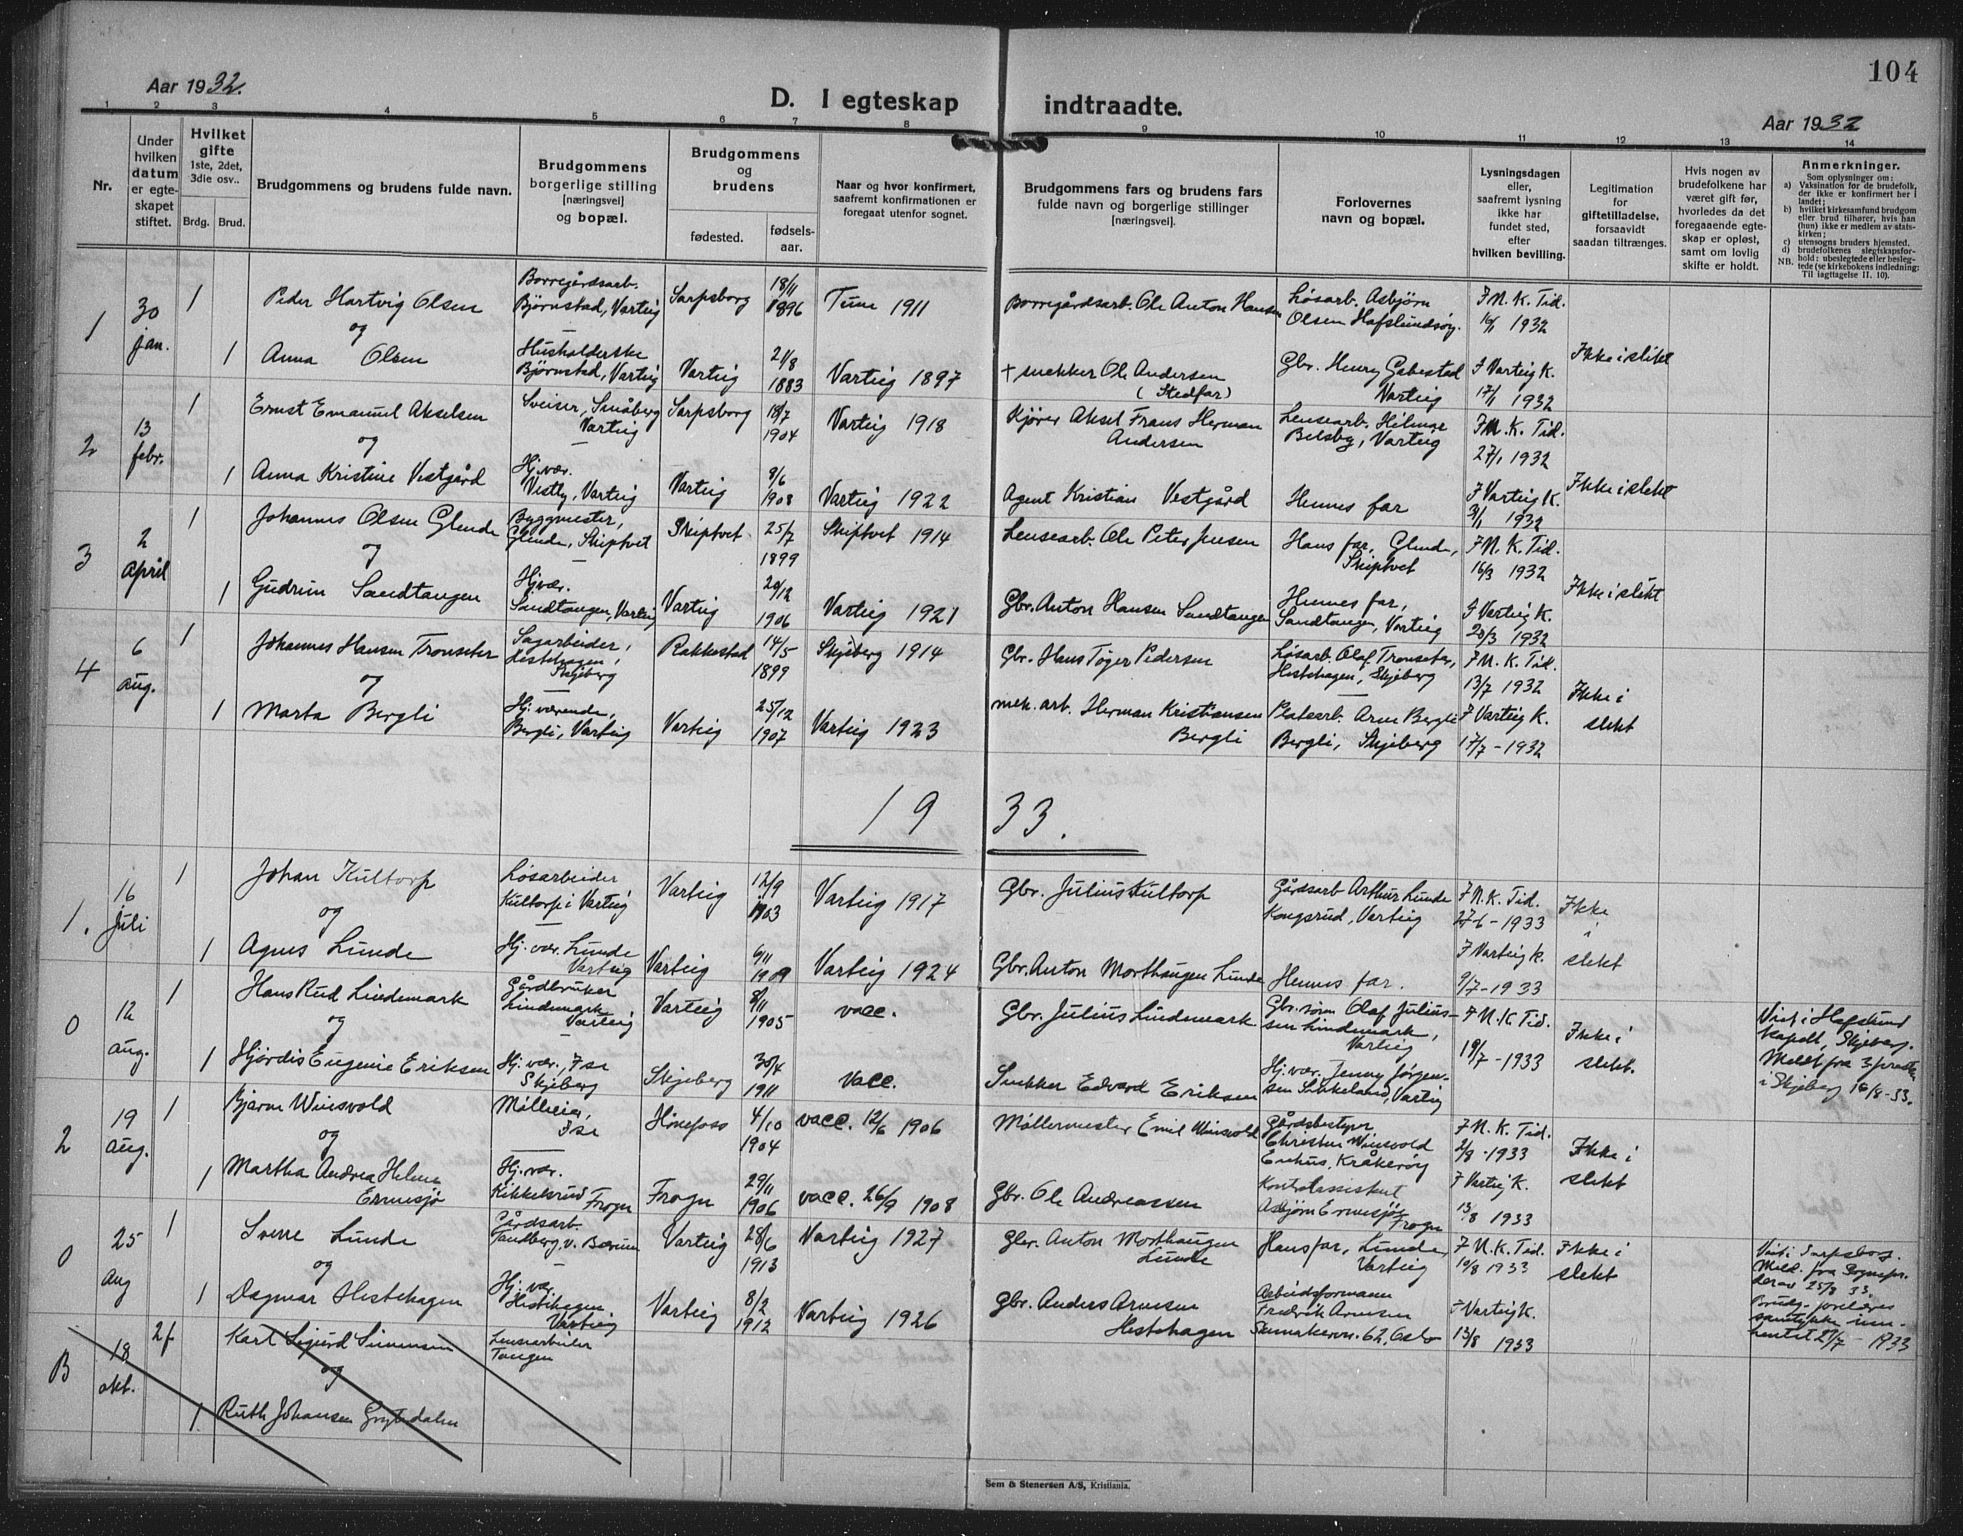 104
Aar 1932.
D. I egteskap indtraadte.
Aar 1932
1 2 3 4 5 6 7 8 9 10 11 12 13 14
Nr.
Under hvilken datum er egte-skapet stiftet.
Hvilket gifte 1ste, 2det, 3die osv..
Brdg. Brud.
Brudgommens og brudens fulde navn.
Brudgommens borgerlige stilling [næringsvei] og bopæl.
Brudgommens og brudens
fødested. fødsels-aar.
Naar og hvor konfirmert, saafremt konfirmationen er foregaat utenfor sognet.
Brudgommens fars og brudens fars fulde navn og borgerlige stillinger [næringsvei].
Forlovernes navn og bopæl.
Lysningsdagen eller, saafremt lysning ikke har fundet sted, efter hvilken bevilling.
Legitimation for giftetilladelse, forsaavidt saadan tiltrænges.
Hvis nogen av brudefolkene har været gift før, hvorledes da det foregaaende egte-skap er opløst, samt om lovlig skifte er holdt.
Anmerkninger.
Som oplysninger om:
a) Vaksination for de brudefolk, der ikke er konfirmert her i landet;
b) hvilket kirkesamfund brudgom eller brud tilhører, hvis han (hun) ikke er medlem av stats-kirken;
c) utensogns bruders hjemsted.
d) brudefolkenes slegtskapsfor-hold: ubeslegtede eller besleg-tede (se kirkebokens indledning:
NB. Til iagttagelse II. 10).
1 30 jan. 1 Peder Hartvig Olsen Borregårdsarb. Bjørnstad, Varteig Sarpsborg 18/11 1896 Tune 1911 Borregårdsarb. Ole Anton Hansen Løsarb. Asbjørn Olsen Hafslundsøy. I N. K. Tid. 16/1 1932
og
1 Anna Olsen Husholderske Bjørnstad, Varteig Varteig 21/8 1883 Varteig 1897 + snekker Ole Andersen (Stedfar) Gbr. Henry Gabestad Varteig I Varteig K. 17/1 1932 Ikke i slekt
2 13 febr. 1 Ernst Emanuel Akselsen Sveiser, Småberg Varteig Sarpsborg 18/7 1904 Varteig 1918 Kjører Aksel Frans Herman Andersen Lensearb. Helmge Belsby, Varteig I N. K. Tid. 27/1 1932
og
1 Anna Kristine Vestgård Hj. vær. Vestby, Varteig Varteig 8/6 1908 Varteig 1922 Agent Kristian Vestgård Hennes far I Varteig K. 31/1 1932 Ikke i slekt
3 2 april 1 Johannes Olsen Glende Byggmester, Glende, Skiptvet Skiptvet 25/7 1899 Skiptvet 1914 Lensearb. Ole Peter Jensen Hans far, Glende, Skiptvet I N. K. Tid. 16/3 1932
og
1 Gudrun Sandtangen Hj. vær. Sandtangen, Varteig Varteig 20/12 1906 Varteig 1921 Gbr. Anton Hansen Sandtangen Hennes far, Sandtangen, Varteig I Varteig K. 20/3 1932 Ikke i slekt
4 6 aug. 1 Johannes Hansen Tronseter Sagarbeider, Hestehagen, Skjeberg Rakkestad 14/5 1899 Skjeberg 1914 Gbr. Hans Tøger Pedersen Løsarb. Olaf Tronseter, Hestehagen, Skjeberg I N. K. Tid. 13/7 1932
og
1 Marta Bergli Hj. værende, Bergli, Varteig Varteig 25/12 1907 Varteig 1923 mek. arb. Herman Kristiansen Bergli Platearb. Arne Bergli Bergli, Skjeberg I Varteig K. 17/7 - 1932 Ikke i slekt
1933.
1. 16 juli 1 Johan Kultorp Løsarbeider Kultorp i Varteig Varteig 12/9 1903 Varteig 1917 Gbr. Julius Kultorp Gårdsarb Arthur Lunde Kongsrud, Varteig I N. K. Tid. 27-6 - 1933 Ikke i slekt
og
1 Agnes Lunde Hj. vær. Lunde Varteig Varteig 6/11 1909 Varteig 1924 Gbr. Anton Morthaugen Lunde Hennes far. I Varteig K. 9/7 - 1933
0 12 aug. 1 Hans Rud Lindemark Gårdbruker Lindemark Varteig Varteig 8/11 1905 vacc. Gbr. Julius Lindemark Gbr. sønn Olaf Julius-sen Lindemark, Varteig I N. K Tid. 19/7 - 1933 Ikke i slekt. Viet i Hafslund kapell, Skjeberg. Meldt fra 3 prestn i Skjeberg 16/8-33.
og
1 Hjørdis Eugenie Eriksen Hj. vær., Ise Skjeberg Skjeberg 30/4 1911 vacc. Snekker Edvard Eriksen Hj. vær. Jenny Jørgen-sen Sikkeland, Varteig
2 19 aug. 1 Bjarne Winsvold Mølleeier, Ise Hønefoss 4/10 1904 vacc. 12/6 1906 Møllermester Emil Winsvold Gårdsbestyrer Christen Winsvold Enhus, Kråkerøy I N. K. Tid. 2/8 - 1933 Ikke i slekt
og
1 Martha Andrea Helene Ermesjø Hj. vær. Kikkelsrud Frogn Frogn 29/11 1906 vacc. 26/9 1908 Gbr. Ole Andreassen Kontrollassistent Asbjørn Ermesjø Frogn I Varteig K. 13/8 1933
0 25 aug 1 Sverre Lunde Gårdsarb. Tandberg, v. Bærum Varteig 28/6 1913 Varteig 1927 Gbr. Anton Morthaugen Lunde Hans far, Lunde, Varteig I N. K. Tid. 10/8 1933 Ikke i slekt Viet i Sarpsborg. Meld. fra Sognepr. der av 25/8 33.
og
1 Dagmar Hestehagen Hj. vær. Hestehagen, Varteig Varteig 8/2 1912 Varteig 1926 Gbr. Anders Arnesen Hestehagen Arbeidsformann Fredrik Arnesen 62, Oslo I Varteig K. 13/8 1933
B 18 okt. 2f Karl Sigurd Simensen Lensearbeider Tangen
og
1. Ruth Johansen Grytedalen
Sem & Stenersen A/S, Kristiania.